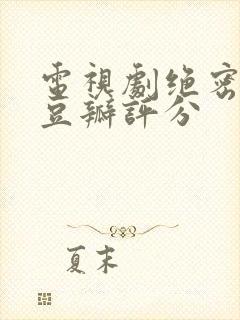 電視劇绝密
豆瓣評分
夏末